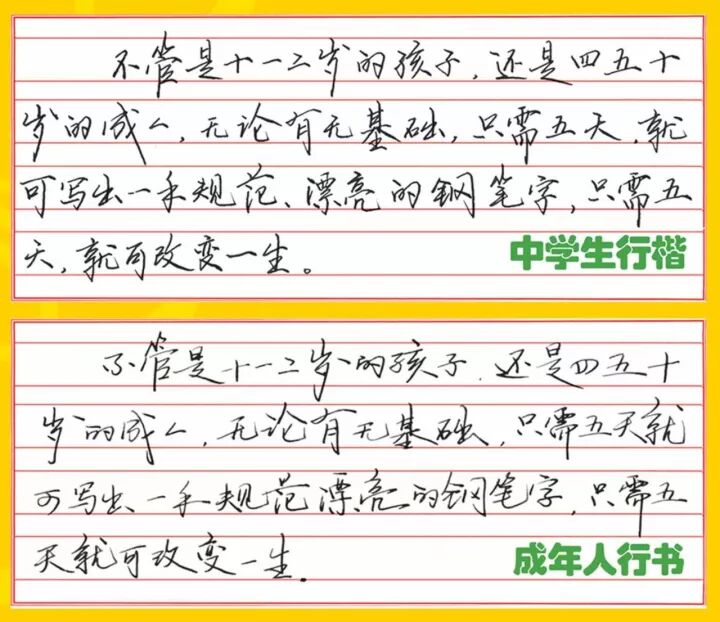 不管是十一二岁的孩子,还是四五十
岁的成人,无论有无基础,只需五天,就
可写出一手规范、漂亮的钢笔字,只需五
天,就可改变一生。
中学生行楷
不管是十一二岁的孩子.还是四五十
岁的成人,无论有无基础,只需五天就
可写出一手规范漂亮的钢笔字,只需五
天就可改变一生.
成年人行书